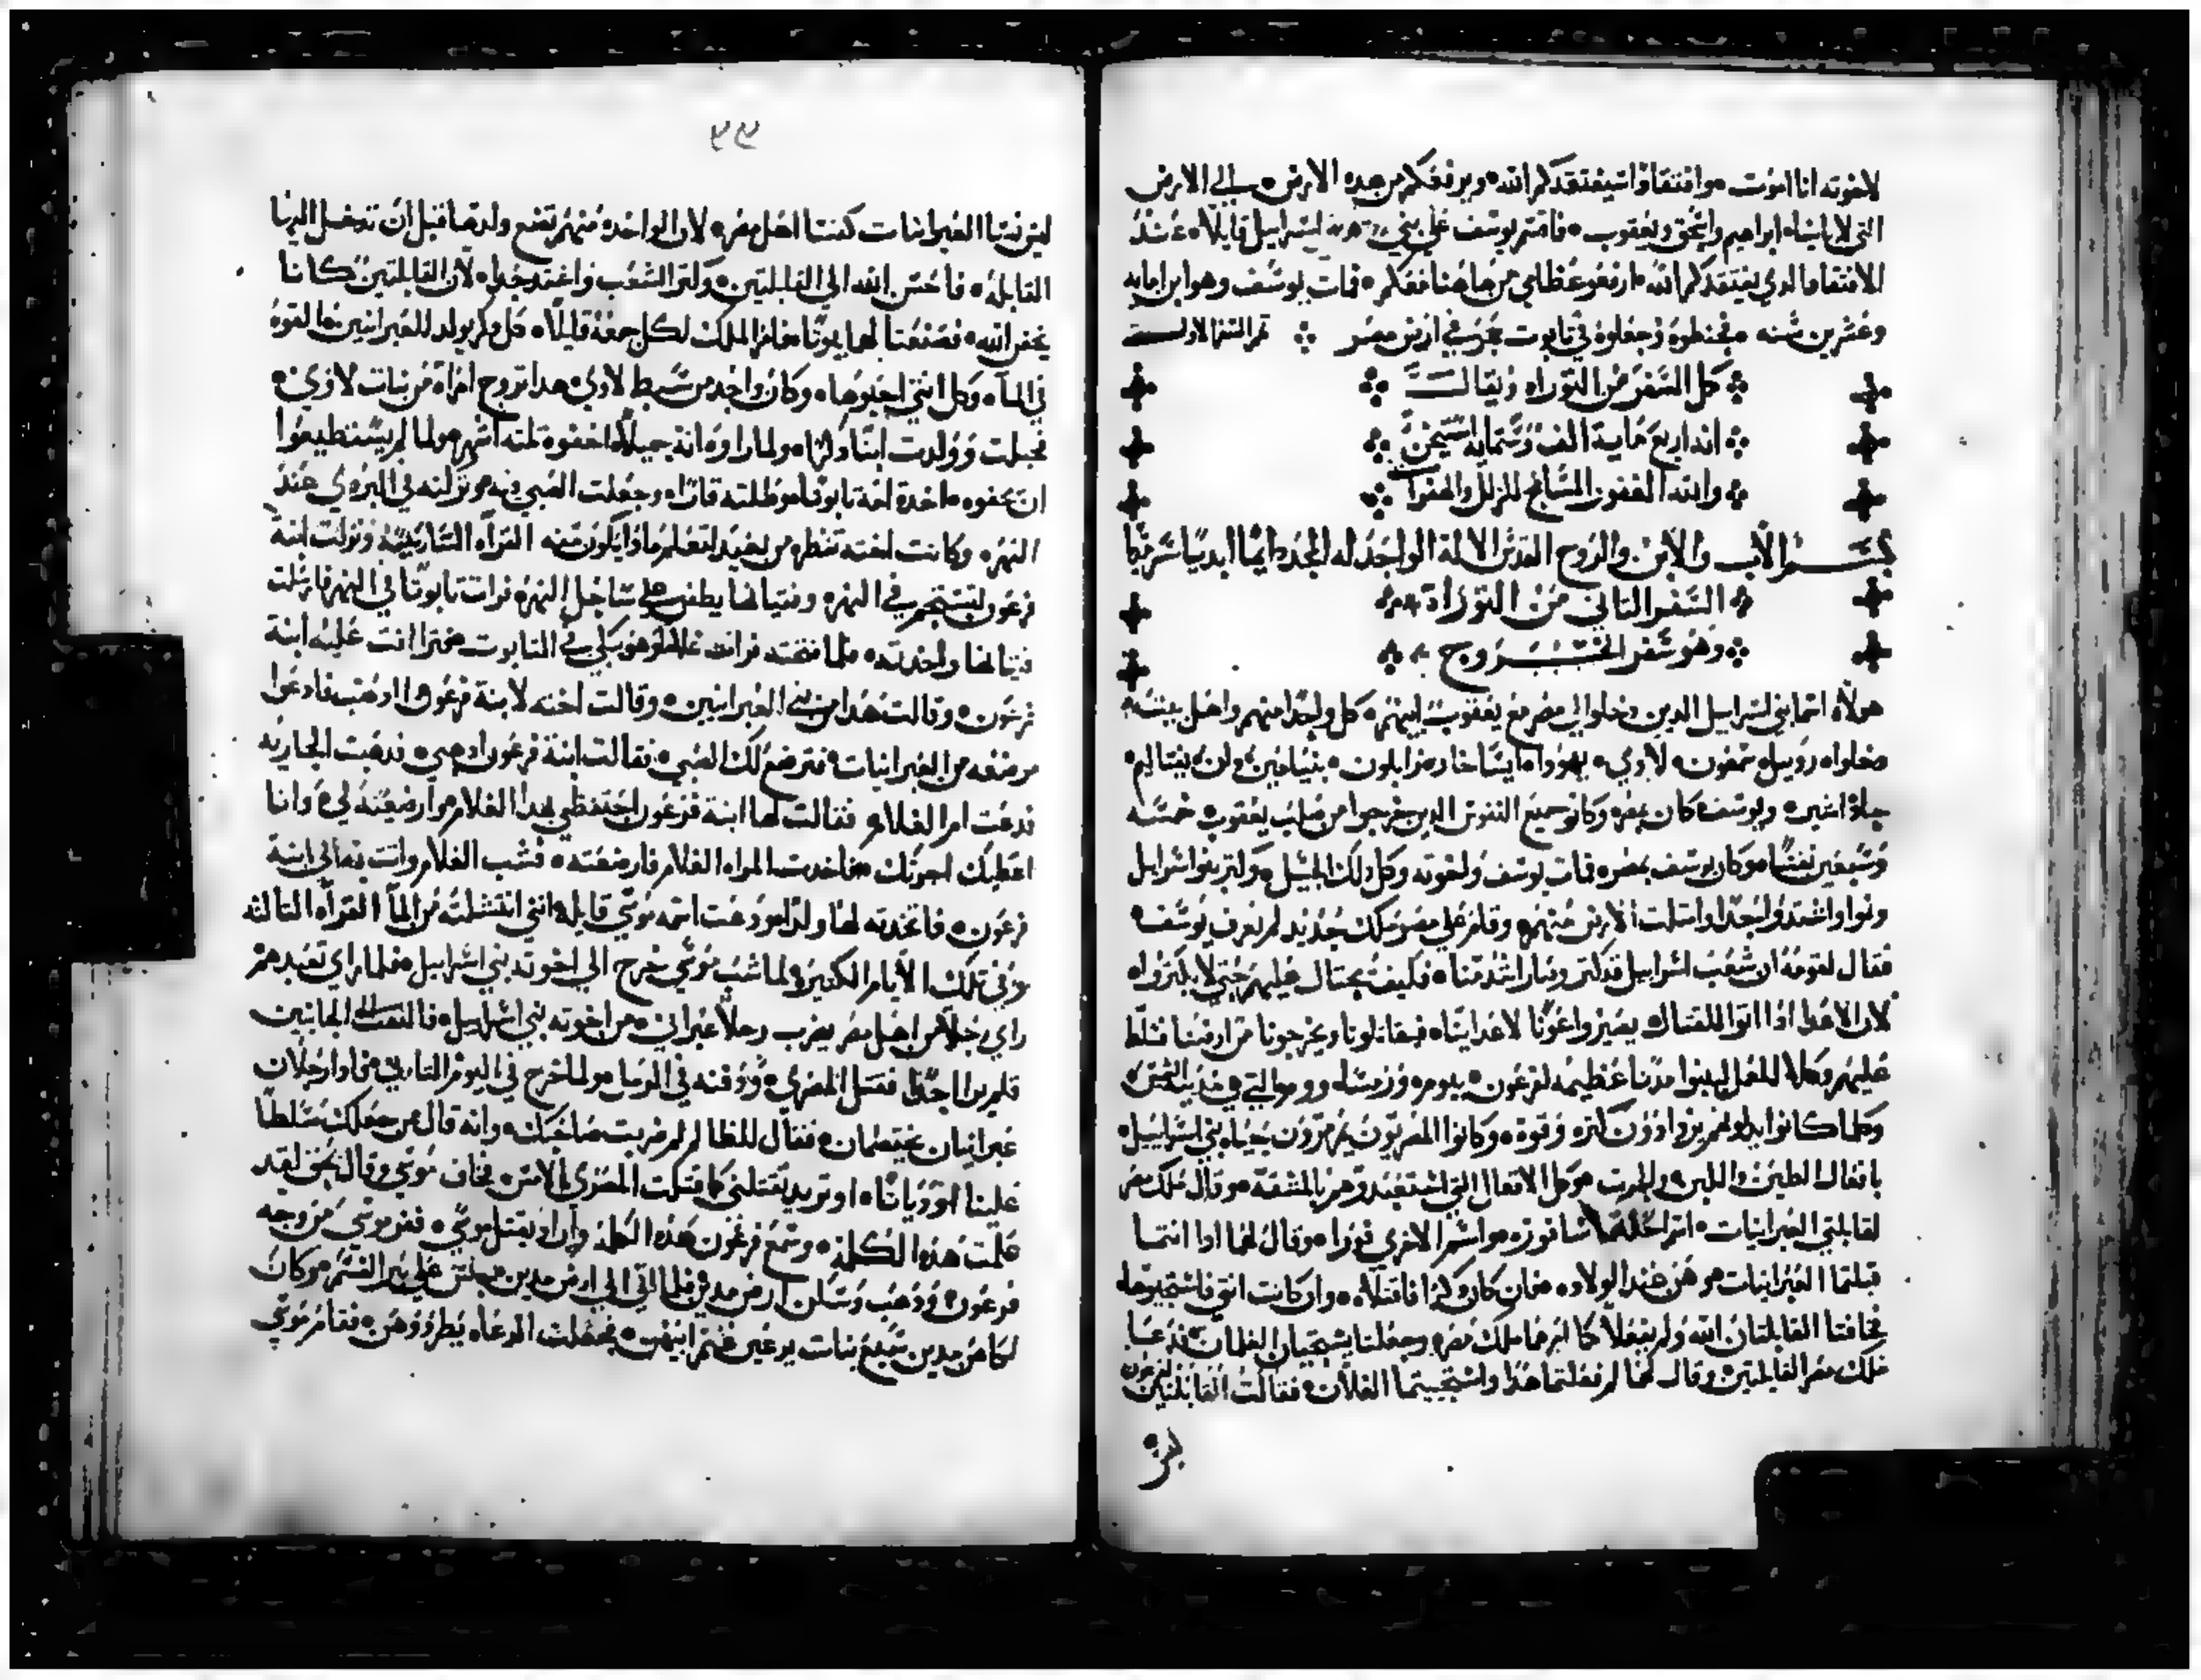 لاخوته انا اموت وافتقادًا سيفتقدكم الله ويرفعكم من هده الارض الي الارض
التي لابايناه ابراهيم واسحق ويعقوب فاقسم يوسف علي بني اسراييل قايلاً عند
الافتقاد الدي يفتقدكم الله ارفعو عظامي من هاهنا معكم فمات يوسف وهو ابن مايه
وعشرين سنه فحنطوه وجعلوه في تابوت في ارض مصر تم السفر الاول
كمل السفر من التوراه
وستمايه
والله الغفور المسامح للزلل والهفوات
بسم الاب والابن والروح القدس الاله الواحد له المجد دايمًا ابديًا سرمديًا
السفر التاني من التوراة
وهو سفر الخروج
هولاء اسما بني اسراييل الدين دخلوا الي مصر مع يعقوب ابيهم كل واحدًا منهم واهل بيته
دخلوا روبيل شمعون لاوي يهودا ايساخار زابلون بنيامين دان نفتاليم
جاد اشير ويوسف كان بمصر وكانو جميع النفوس الدين خرجوا من صلب يعقوب خمسه
وسبعين نفسًا وكان يوسف بمصر فمات يوسف واخوته وكل دلك الجيل وكتر بنوا اسراييل
ونموا واشتدوا جدًا وامتلت الارض منهم وقام علي مصر ملك جديد لم يعرف يوسف
فقال لقومه ان شعب اسراييل قد كتر وصار اشد منا فكيف نحتال عليهم حتي لا يكتروا
لان الاعدا ادا اتوا للقتال يصيروا عونًا لاعداينا فيقاتلونا ويخرجونا من ارضنا فسلط
عليهم وكلا للعمل ليبنوا مدنًا عظيمه لفرعون
وكلما كانوا يدلونهم يزدادون كتره وقوه وكانوا المصريون يمررون حياه بني اسراييل
بافعال الطين واللبن وكل الافعال التي استعبدوهم بالمشقة وقال ملك مصر
لقابلتي العبرانيات اسم احداهما شافوره واسم الاخري فورا وقال لهما ادا انتما
قبلتما العبرانيات وهن عند الولاده فان كان دكرًا فاقتلاه وان كانت انتي فاستحيوها
فخافتا القابلتان الله ولم يفعلا كما امرهما ملك مصر وجعلتا يستحييان الغلمان فدعا
ملك مصر القابلتين وقال لهما لم فعلتما هدا واستحييتما الغلمان فقالت القابلتين لفرعون
ليس
ليس نسا العبرانيات كنسا اهل مصر لان الواحده منهم تضع ولدها قبل ان تدخل اليها
القابله فاحسن الله الي القابلتين وكتر الشعب واعتد جدا لان القابلتين كانا
يخفن الله فصنعتا لهما بيوتًا فامر الملك لكل جمعه قايلاً كل دكر يولد للعبرانيين فالقوه
في الماء وكل انتي احيوها وكان واحد من سبط لاوي هدا تزوج امراة من بنات لاوي
فحبلت وولدت ابنًا دكرًا ولما راوه انه جميلاً اخفوه تلته اشهر ولما لم يستطيعوا
ان يخفوه اخدت امه تابوتًا وطلته قارًا وجعلت الصبي فيه وتركته في البردي عند
النهر وكانت اخته تنظره من بعيد لتعلم مادا يكون منه القراه التانيه ونزلت ابنة
فرعون لتستحم في النهر وفتياتها يطفن علي ساحل النهر فرات تابوتًا في النهر فارسلت
فتياتها واخدته فلما فتحته فرات غلامًا وهو يبكي في التابوت فتراافت عليه ابنة
فرعون وقالت هدا من بني العبرانيين وقالت اخته لابنة فرعون ادهب فادعوا
مرضعه من العبرانيات فترضع لك الصبي فقالت ابنة فرعون ادهبي فدهبت الجاريه
فدعت ام الغلام فقالت لها ابنة فرعون احتفظي بهدا الغلام وارضعيه لي وانا
اعطيك اجرتك فاخدت المراه الغلام فارضعته فشب الغلام واتت به الي ابنة
فرعون فاتخدته لها ولدًا ودعت اسمه موسي قايله انني انتشلته من الماء القراه التالته
وفي تلك الايام الكتيره لما شب موسي خرج الي اخوته بني اسراييل فلما راي تعبدهم
راي رجلاً من اهل مصر يضرب رجلاً عبراني من اخوته بني اسراييل فالتفت الي الجانبين
فلم يرا احدًا فقتل المصري ودفنه في الرمل ولما خرج في اليوم التاني فادا رجلان
عبرانيان يختصمان فقال للظالم لم ضربت صاحبك وانه قال من جعلك مسلطًا
علينا او ديانًا او تريد تقتلني كما قتلت المصري بالامس فخاف موسي وقال بحق لقد
علمت هده الكلمه وسمع فرعون هده الكلمه واراد يقتل موسي ففر موسي من وجه
فرعون ودهب وسكن ارض مدين فلما اتي الي ارض مدين جلس علي بير البير وكان
لكاهن مدين سبع بنات يرعين غنم ابيهن فجعلت الرعاه يطردوهن فقام موسي